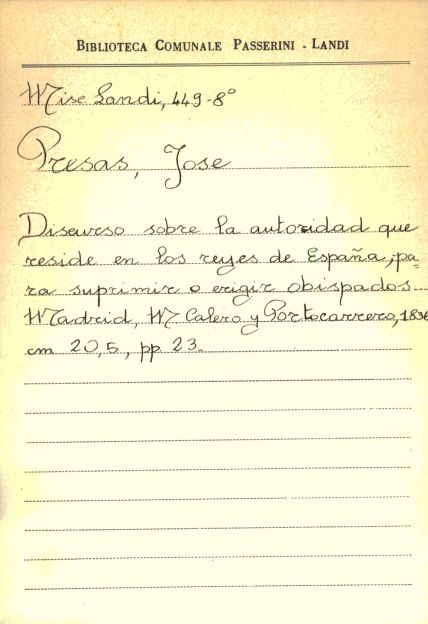 BIBLIOTECA COMUNALE PASSERINI - LANDI
Misc Landi, 449-8°
Presas, Jose
Discurso sobre la autoridad que
reside en los reyes de España, pa-
ra suprimir o erigir obispados...
Madrid, M Calero y Portocarrero, 1836
cm 20,5, pp 23.